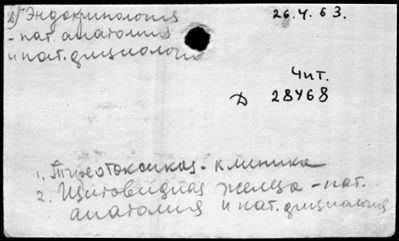 2) Эндокринология
- пат. анатомия
и пат. физиология
26.4.63.
Чит.
Д 28468
1. Тиреотоксикоз - клиника
2. Щитовидная железа - пат.
анатомия и пат. физиология